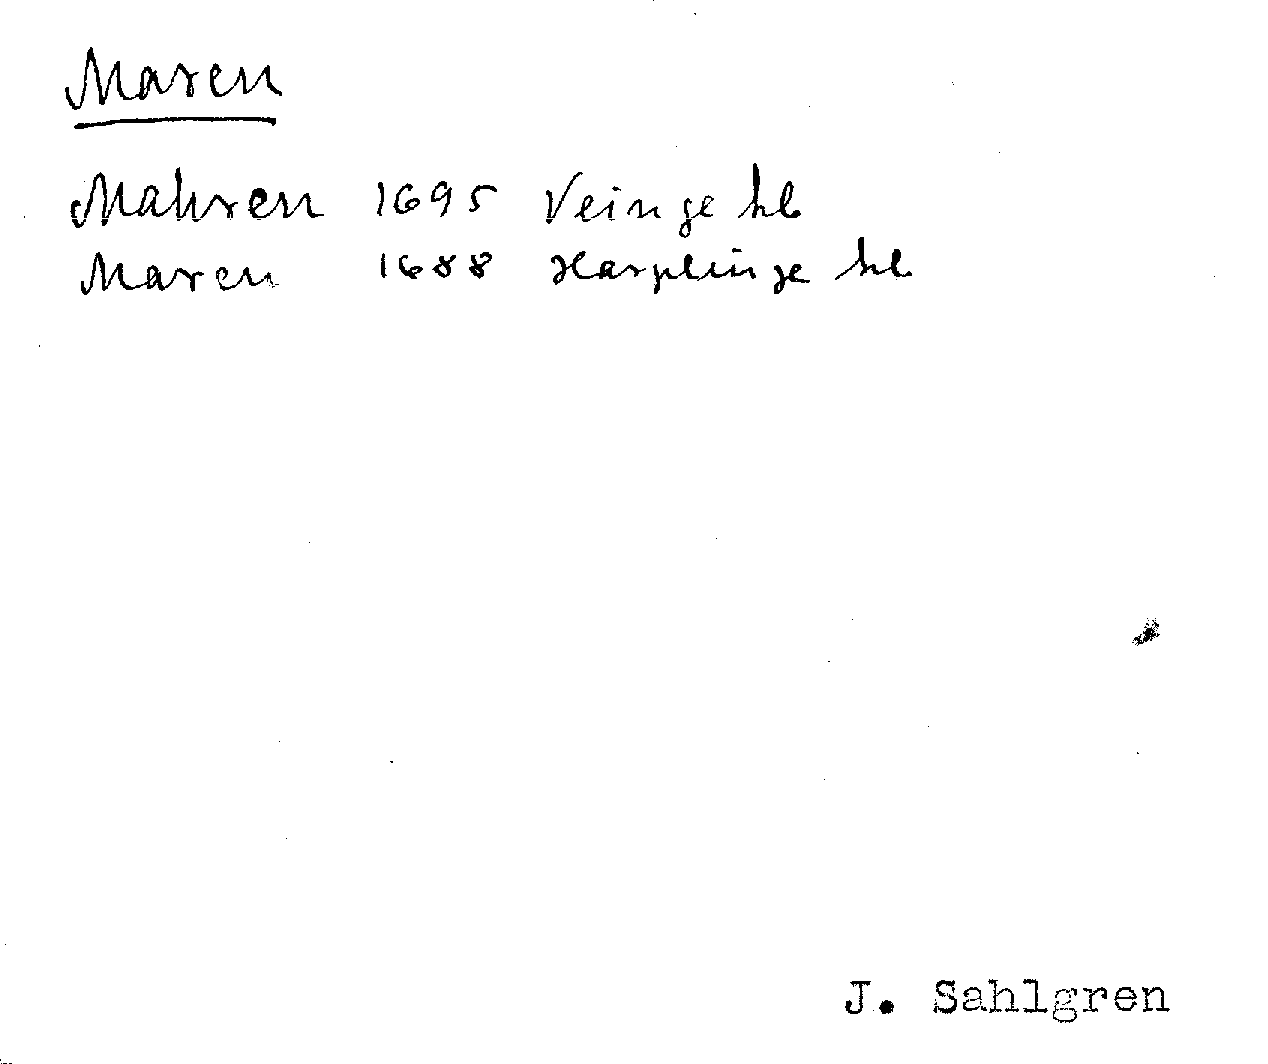 Maren
Mahren 1695 Veinge hl
Maren 1688 Harplinge hl
J. Sahlgren